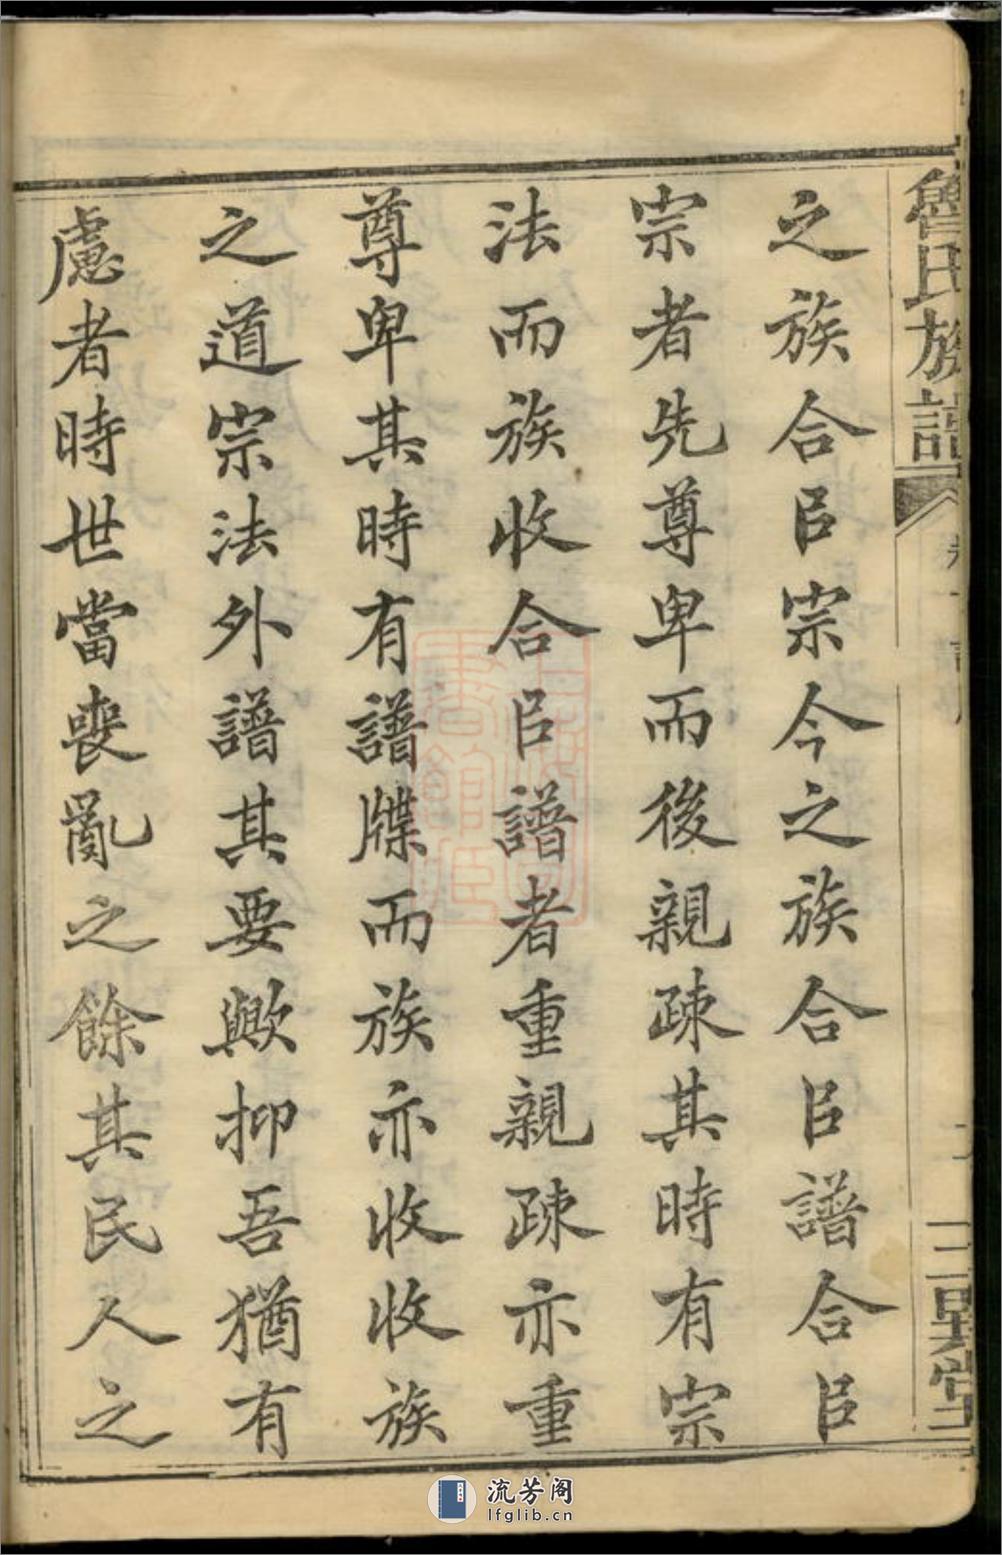 魯氏族譜
卷一
二
三異堂
之族合㠯宗今之族合㠯譜合㠯
宗者先尊卑而後親疎其時有宗
法而族收合㠯譜者重親疎亦重
尊卑其時有譜牒而族亦收收族
之道宗法外譜其要歟抑吾猶有
慮者時世當喪亂之餘其民人之
流芳阁
lfglib.cn